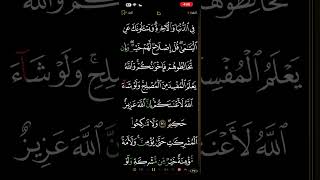 فِي الدُّنْيَا وَالْآخِرَةِ وَيَسْأَلُونَكَ عَنِ
الْيَتَامَىٰ قُلْ إِصْلَاحٌ لَهُمْ خَيْرٌ وَإِنْ
تُخَالِطُوهُمْ فَإِخْوَانُكُمْ وَاللَّهُ
يَعْلَمُ الْمُفْسِدَ مِنَ الْمُصْلِحِ وَلَوْ شَاءَ
اللَّهُ لَأَعْنَتَكُمْ إِنَّ اللَّهَ عَزِيزٌ
حَكِيمٌ وَلَا تَنْكِحُوا
الْمُشْرِكَاتِ حَتَّىٰ يُؤْمِنَّ وَلَأَمَةٌ
مُؤْمِنَةٌ خَيْرٌ مِنْ مُشْرِكَةٍ وَلَوْ